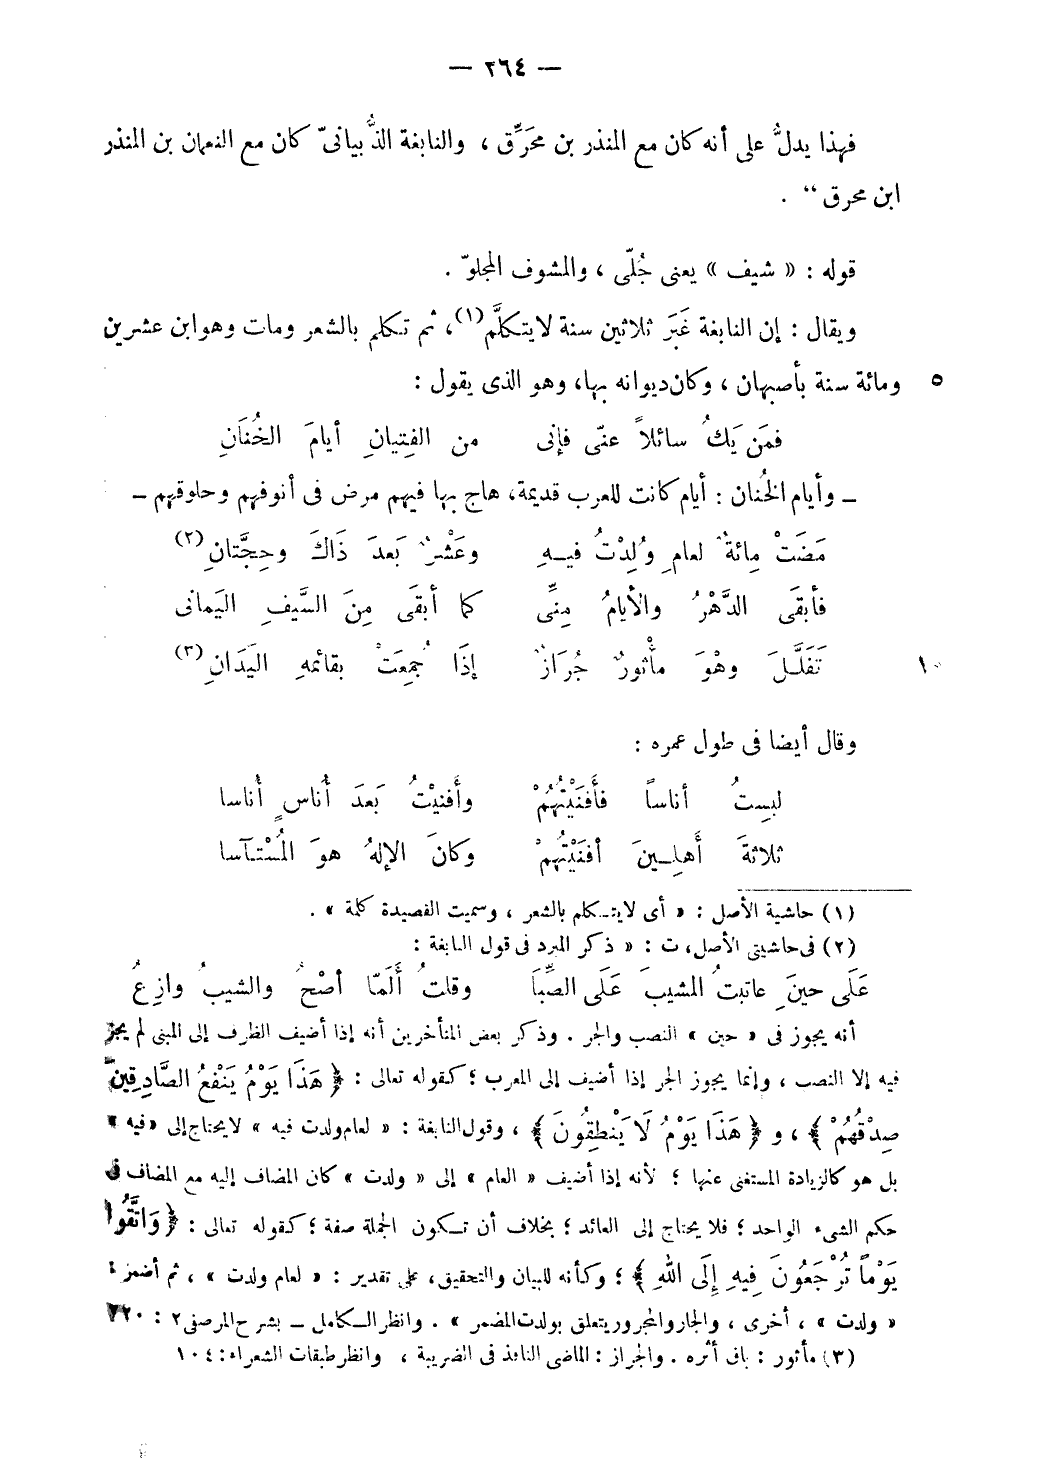 — ٢٦٤ —
فهذا يدلُّ على أنه كان مع المنذر بن محَرِّق ، والنابغة الذُّبيانىّ كان مع النعمان بن المنذر
ابن محرق “ .
قوله : « شيف » يعنى جُلّى ، والمشوف المجلوّ .
ويقال : إن النابغة غَبَرَ ثلاثين سنة لايتكلَّم (١)، ثم تكلم بالشعر ومات وهو ابن عشرين
٥ ومائة سنة بأصبهان ، وكان ديوانه بها، وهو الذى يقول :
فمَن يَكُ سائلاً عنّى فإنى من الفِتيانِ أيامَ الخُنَانِ
ــ وأيام الخُنان : أيام كانت للعرب قديمة، هاج بها فيهم مرض فى أنوفهم وحلوقهم ــ
مَضَتْ مِائةٌ لعامِ وُلِدْتُ فيــهِ وعَشْرٌ بَعدَ ذَاكَ وحِجَّتانِ (٢)
فأبقَى الدَّهْرُ والأيامُ مِنِّى كما أبقَى مِنَ السَّيفِ اليَمانى
١٠ تَفَلَّـلَ وهْوَ مأْثورٌ جُرَازٌ إذَا جُمِعَتْ بقائمهِ اليَدَانِ (٣)
وقال أيضا فى طول عمره :
لبِستُ أناساً فأَفنَيْتُهُمْ وأَفنيْتُ بَعدَ أُناسٍ أُناسا
ثلاثةَ أَهلِـينَ أفنَيْتُهمْ وكانَ الإلهُ هوَ المُسْتآسا
(١) حاشية الأصل : « أى لايتكلم بالشعر ، وسميت القصيدة كلمة » .
(٢) فى حاشيتى الأصل، ت : « ذكر المبرد فى قول النابغة :
عَلَى حينَِ عاتبتُ المشيبَ عَلَى الصِّبَا وقلتُ أَلَمّا أصْحُ والشيبُ وازعُ
أنه يجوز فى « حين » النصب والجر . وذكر بعض المتأخرين أنه إذا أضيف الظرف إلى المبنى لم يجز
فيه إلا النصب ، وإنما يجوز الجر إذا أضيف إلى المعرب ؛ كقوله تعالى : ﴿ هَذَا يَوْمُ يَنْفَعُ الصَّادِقِينَ
صِدْقُهُمْ ﴾ ، و ﴿ هَذَا يَوْمُ لَا يَنْطِقُونَ ﴾ ، وقول النابغة : « لعام ولدت فيه » لا يحتاج إلى «فيه »
بل هو كالزيادة المستغنى عنها ؛ لأنه إذا أضيف « العام » إلى « ولدت » كان المضاف إليه مع المضاف فى
حكم الشىء الواحد ؛ فلا يحتاج إلى العائد ؛ بخلاف أن تكون الجملة صفة ؛ كقوله تعالى : ﴿ وَاتَّقُوا
يَوْماً تُرْجَعُونَ فِيهِ إِلَى اللهِ ﴾ ؛ وكأنه للبيان والتحقيق، على تقدير : « لعام ولدت » ، ثم أضمر :
« ولدت » ، أخرى ، والجار والمجرور يتعلق بولدت المضمر » . وانظر الكامل ــ بشرح المرصفى ٢ : ٧٢٠
(٣) مأثور : باق أثره . والجراز : الماضى النافذ فى الضريبة ، وانظر طبقات الشعراء : ١٠٤